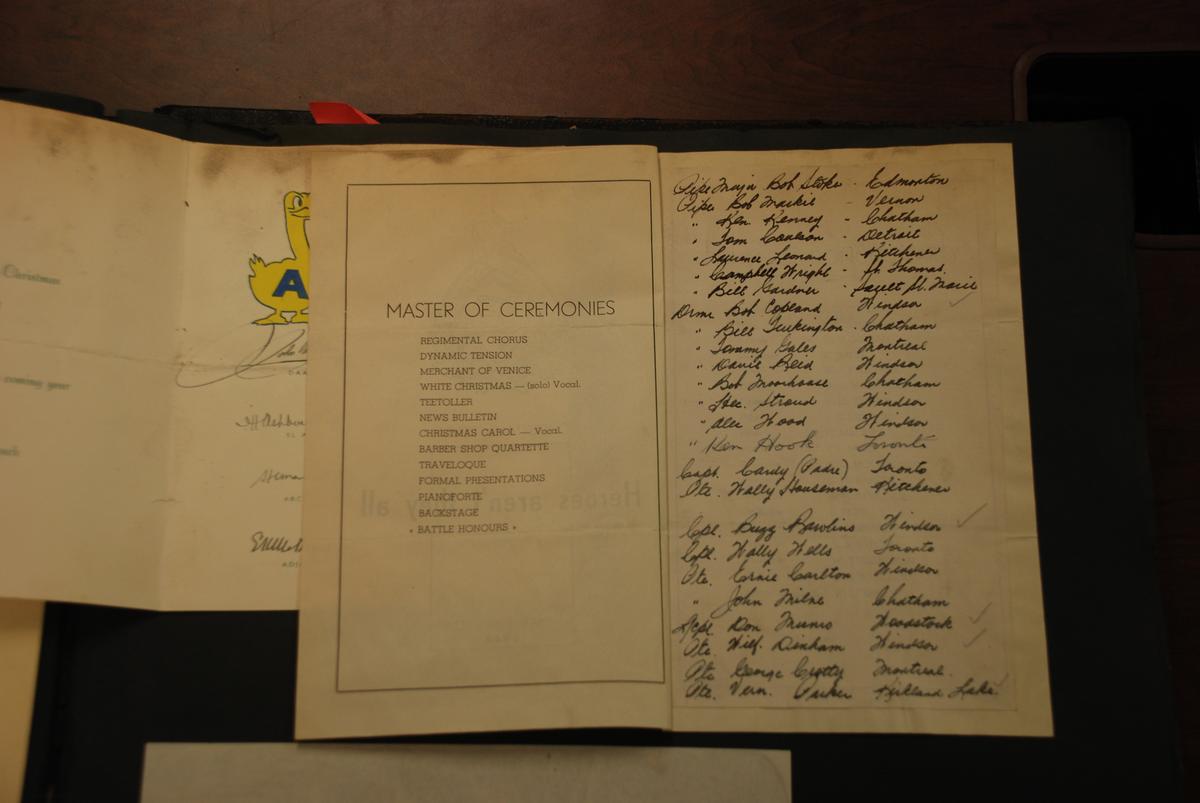 Christmas
coming year
A
MASTER OF CEREMONIES
REGIMENTAL CHORUS
DYNAMIC TENSION
MERCHANT OF VENICE
WHITE CHRISTMAS — (solo) Vocal.
TEETOLLER
NEWS BULLETIN
CHRISTMAS CAROL — Vocal.
BARBER SHOP QUARTETTE
TRAVELOQUE
FORMAL PRESENTATIONS
PIANOFORTE
BACKSTAGE
• BATTLE HONOURS •
Pipe Major Bob Stokes - Edmonton
Piper Bob Mackie - Vernon
" Ken Kenney - Chatham
" Tom Coulson - Detroit
" Laurence Leonard - Kitchener
" Campbell Wright - St. Thomas.
" Bill Gardner - Sault St. Marie
Drmr Bob Copland Windsor
" Bill Turkington - Chatham
" Tommy Gales Montreal
" Davie Reid Windsor
" Bob Moorhouse Chatham
" Stroud Windsor
" Alec Wood Windsor
" Ken Hook Toronto
Capt. Cardy (Padre) Toronto
Pte. Wally Houseman Kitchener
Cpl. Buzz Rawlins Windsor
Cpl. Wally Wells Toronto
Pte. Ernie Carlton Windsor
" John Milne Chatham
L/Cpl Don Munro Woodstock
Pte. Wilf. Dinham Windsor
Pte. George Crotty Montreal.
Pte. Vern. Parker Kirkland Lake